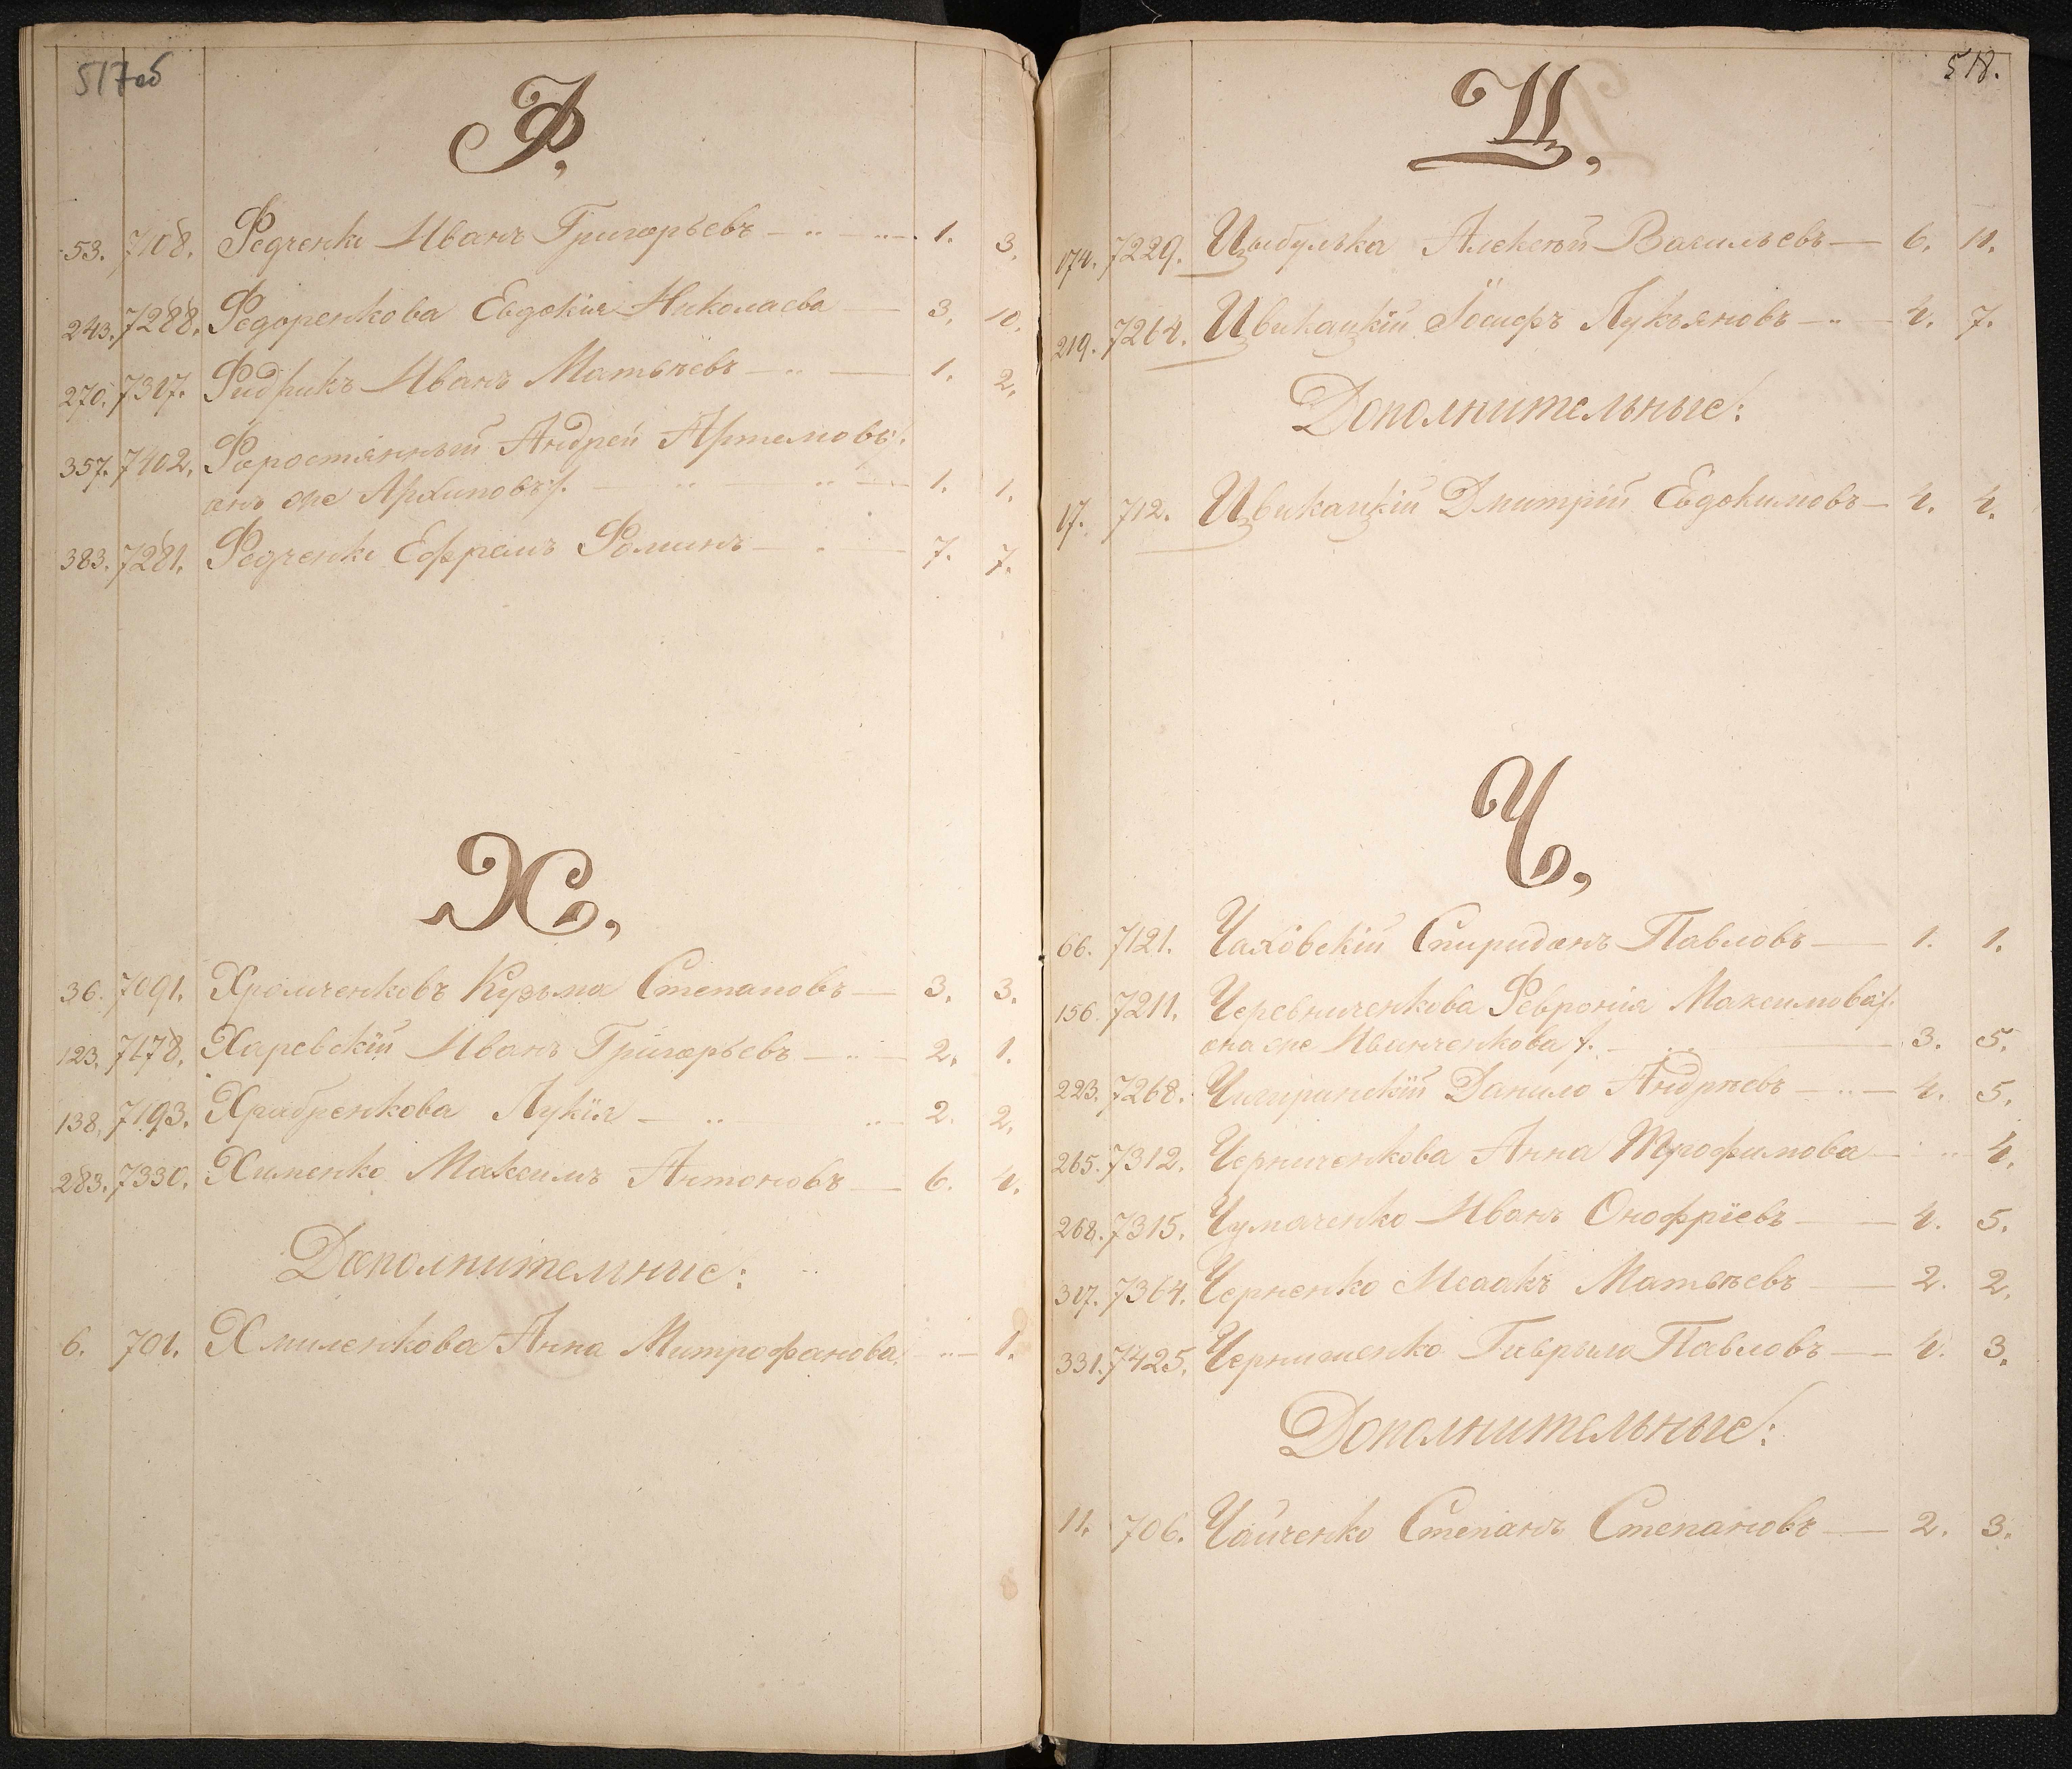 517об
Ф,
53. 7108. Федченко Иванъ Григорьевъ — .. — .. — 1. 3.
243. 7288. Федоренкова Евдокія Николаева — 3. 10.
270. 7317. Фидрикъ Иванъ Матвѣевъ — .. — 1. 2.
357. 7402. Форостянный Андрей Артемовъ/.
онъ же Архиповъ/. — .. — .. — 1. 1.
383. 7281. Федченко Ефремъ Фоминъ — . — 7. 7.
Х,
36. 7091. Хромченковъ Кузьма Степановъ — 3. 3.
123. 7178. Харевскій Иванъ Григорьевъ — .. — 2. 1.
138. 7193. Храбренкова Лукія — .. — .. — 2. 2.
283. 7330. Хименко Максимъ Антоновъ — 6. 4.
Дополнительные:
6. 701. Хмиленкова Анна Митрофанова .. — 1.
518.
Ц,
174. 7229. Цыбулька Алексѣй Васильевъ — 6. 11.
219. 7264. Цвикацкій Іосифъ Лукьяновъ — .. — 4. 7.
Дополнительные:
17. 712. Цвикацкій Дмитрій Евдокимовъ — 4. 4.
Ч,
66. 7121. Чаховскій Спиридонъ Павловъ — 1. 1.
156. 7211. Черевниченкова Февронія Максимова/.
она же Иванченкова/. — .. — 3. 5.
223. 7268. Чигиринскій Данило Андрѣевъ — .. — 4. 5.
265. 7312. Черниченкова Анна Трофимова — .. 4.
268. 7315. Чумаченко Иванъ Онофріевъ — 4. 5.
317. 7364. Черненко Исаакъ Матвѣевъ — 2. 2.
331. 7425. Чернишенко Гаврыло Павловъ — 4. 3.
Дополнительные:
11. 706. Чайченко Степанъ Степановъ — 2. 3.